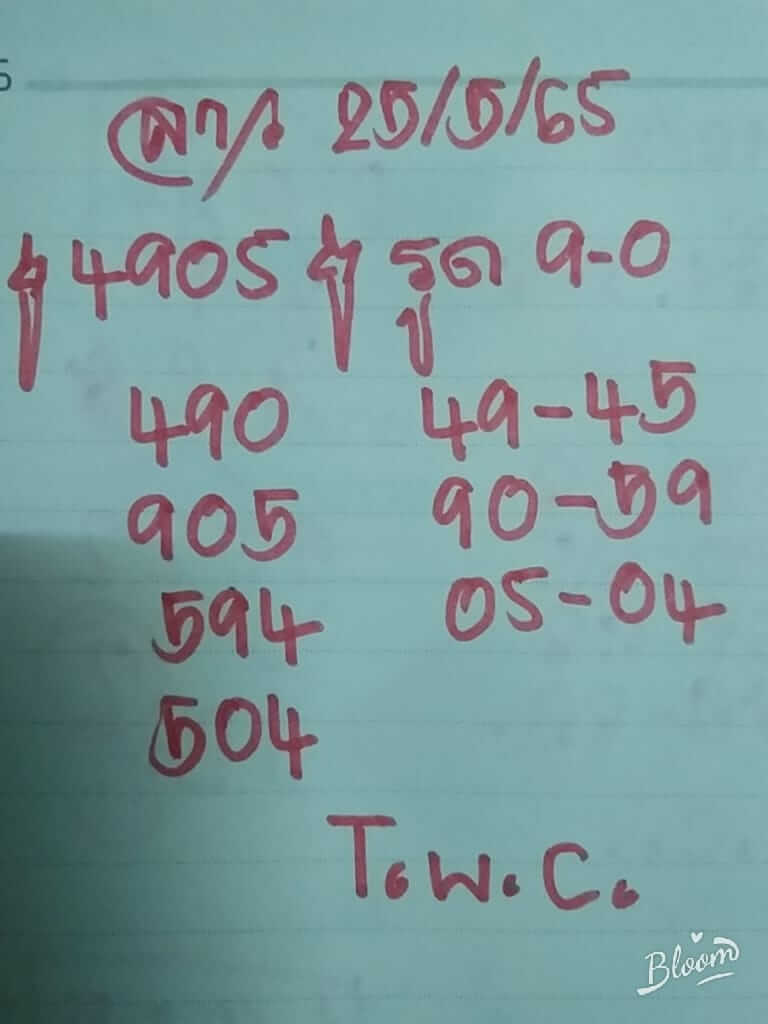 5
ลาว 25/5/65
4905 รูด 9-0
490 49-45
905 90-59
594 05-04
504
T.W.C.
Bloom